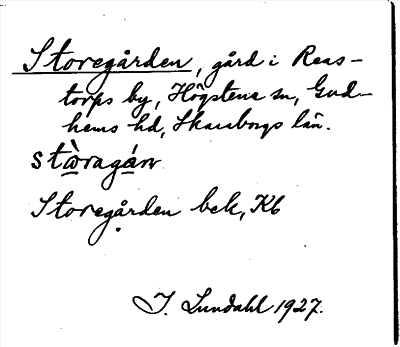 Storegården, gård i Reas-
torps by, Högstena sn, Gud-
hems hd, Skaraborgs län.
stòragán
Storegården bek, Kb
I. Lundahl 1927.